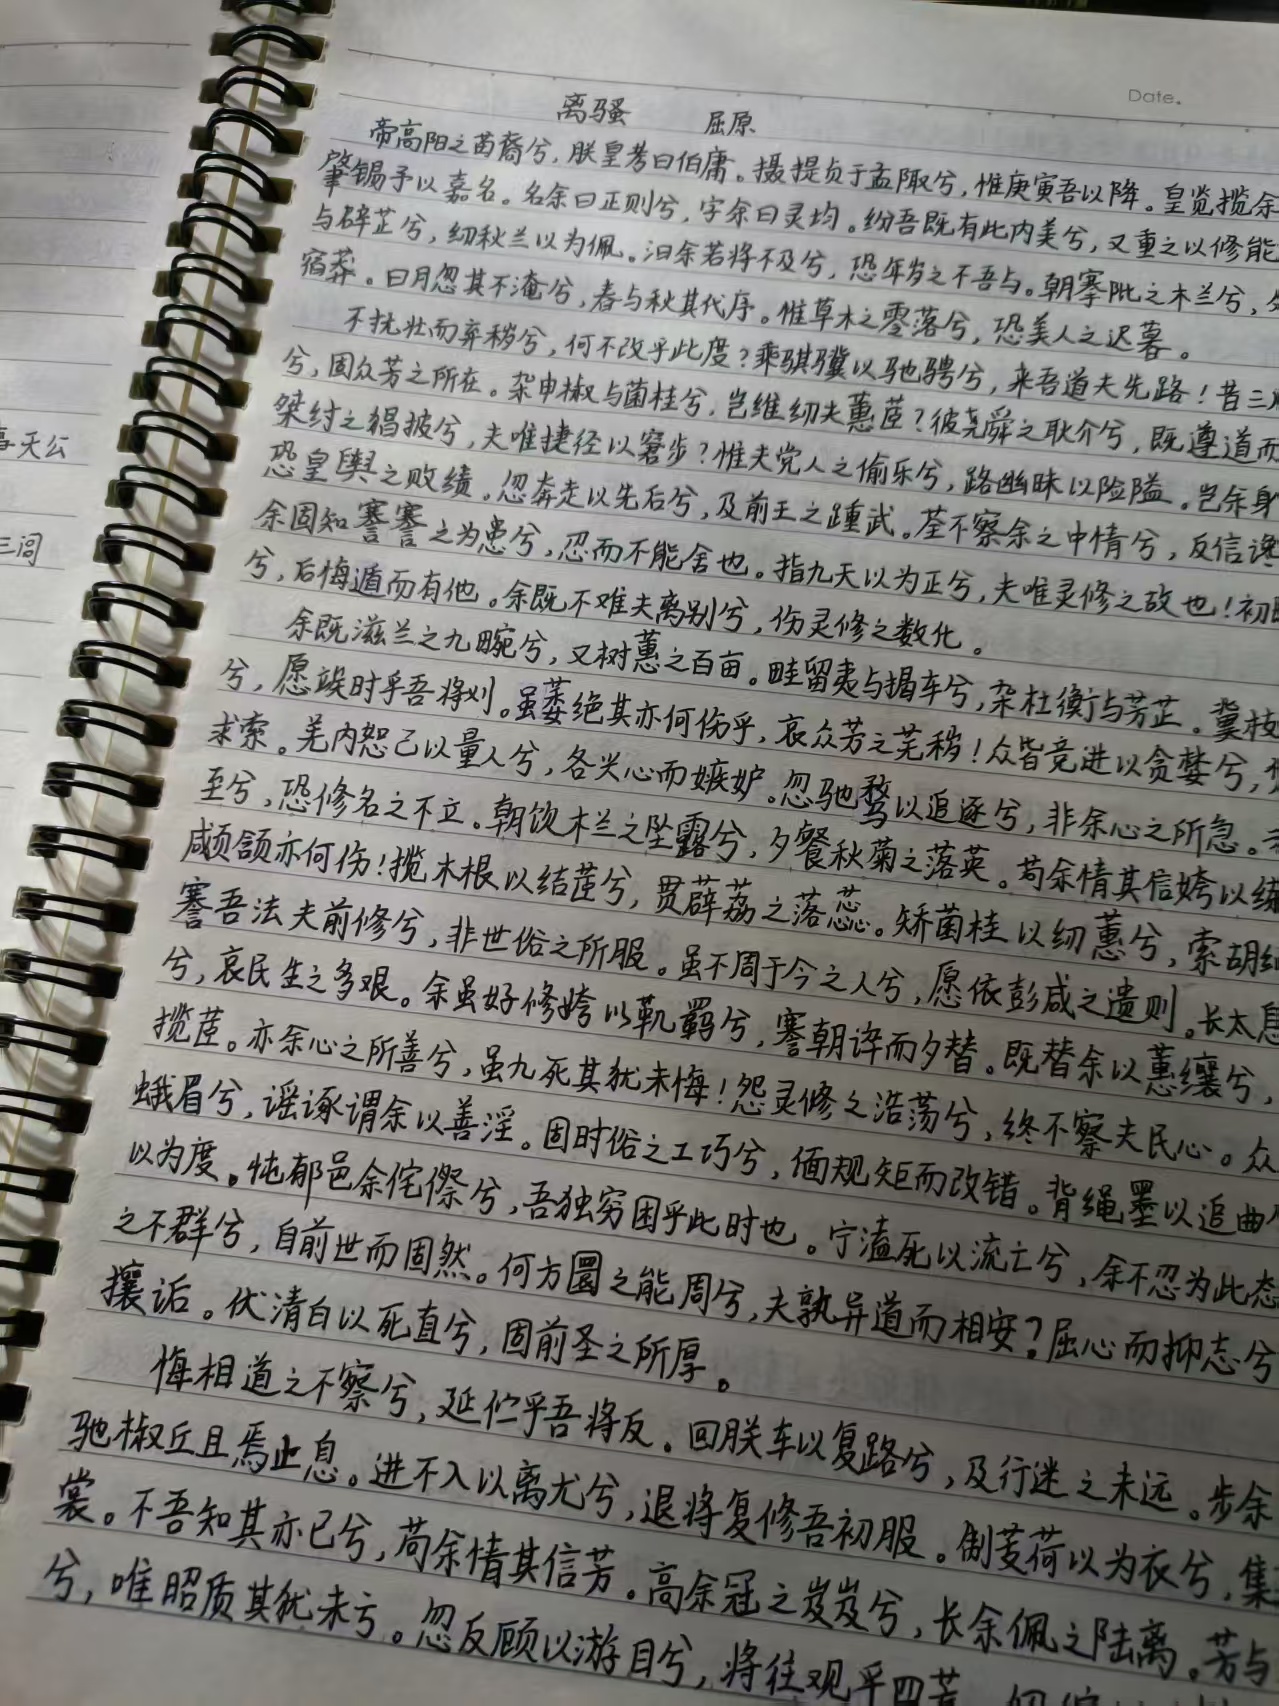 Date.
离骚 屈原
帝高阳之苗裔兮，朕皇考曰伯庸。摄提贞于孟陬兮，惟庚寅吾以降。皇览揽余
肇锡予以嘉名。名余曰正则兮，字余曰灵均。纷吾既有此内美兮，又重之以修能
与辟芷兮，纫秋兰以为佩。汩余若将不及兮，恐年岁之不吾与。朝搴阰之木兰兮，
宿莽。日月忽其不淹兮，春与秋其代序。惟草木之零落兮，恐美人之迟暮。
不抚壮而弃秽兮，何不改乎此度？乘骐骥以驰骋兮，来吾道夫先路！昔三
兮，固众芳之所在。杂申椒与菌桂兮，岂维纫夫蕙茝？彼尧舜之耿介兮，既遵道而
桀纣之猖披兮，夫唯捷径以窘步？惟夫党人之偷乐兮，路幽昧以险隘。岂余身
恐皇舆之败绩。忽奔走以先后兮，及前王之踵武。荃不察余之中情兮，反信谗
余固知謇謇之为患兮，忍而不能舍也。指九天以为正兮，夫唯灵修之故也！初
兮，后悔遁而有他。余既不难夫离别兮，伤灵修之数化。
余既滋兰之九畹兮，又树蕙之百亩。畦留夷与揭车兮，杂杜衡与芳芷。冀枝
兮，愿竢时乎吾将刈。虽萎绝其亦何伤乎，哀众芳之芜秽！众皆竞进以贪婪兮，
求索。羌内恕己以量人兮，各兴心而嫉妒。忽驰骛以追逐兮，非余心之所急。
至兮，恐修名之不立。朝饮木兰之坠露兮，夕餐秋菊之落英。苟余情其信姱以练
顑颔亦何伤！揽木根以结茝兮，贯薜荔之落蕊。矫菌桂以纫蕙兮，索胡
謇吾法夫前修兮，非世俗之所服。虽不周于今之人兮，愿依彭咸之遗则。长太息
兮，哀民生之多艰。余虽好修姱以鞿羁兮，謇朝谇而夕替。既替余以蕙纕兮，
揽茝。亦余心之所善兮，虽九死其犹未悔！怨灵修之浩荡兮，终不察夫民心。众
蛾眉兮，谣诼谓余以善淫。固时俗之工巧兮，偭规矩而改错。背绳墨以追曲
以为度。忳郁邑余侘傺兮，吾独穷困乎此时也。宁溘死以流亡兮，余不忍为此态
之不群兮，自前世而固然。何方圜之能周兮，夫孰异道而相安？屈心而抑志兮
攘诟。伏清白以死直兮，固前圣之所厚。
悔相道之不察兮，延伫乎吾将反。回朕车以复路兮，及行迷之未远。步余
驰椒丘且焉止息。进不入以离尤兮，退将复修吾初服。制芰荷以为衣兮，集
裳。不吾知其亦已兮，苟余情其信芳。高余冠之岌岌兮，长余佩之陆离。芳与
兮，唯昭质其犹未亏。忽反顾以游目兮，将往观乎四荒
天公
三闾